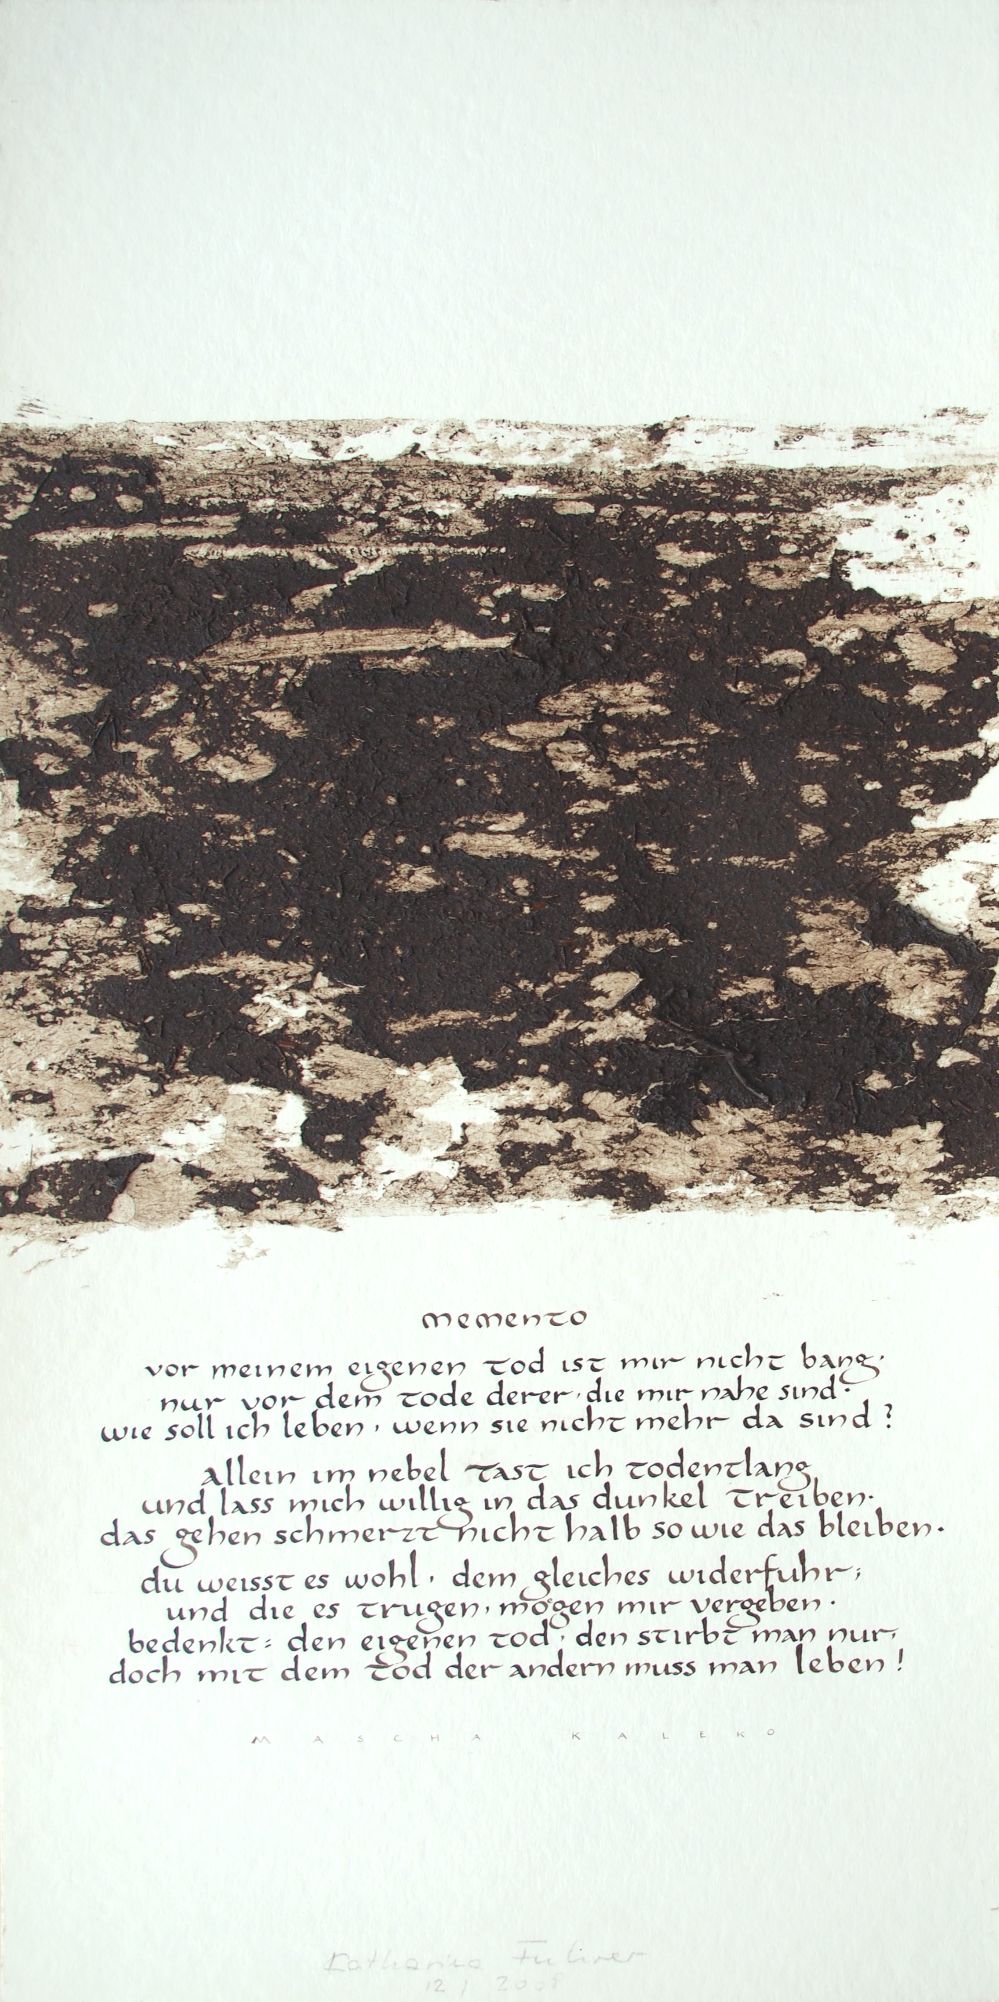 memento
vor meinem eigenen tod ist mir nicht bang.
nur vor dem tode derer, die mir nahe sind.
wie soll ich leben, wenn sie nicht mehr da sind?
allein im nebel tast ich todentlang
und lass mich willig in das dunkel treiben.
das gehen schmerzt nicht halb so wie das bleiben.
du weisst es wohl, dem gleiches widerfuhr;
und die es trugen, mögen mir vergeben.
bedenkt: den eigenen tod, den stirbt man nur,
doch mit dem tod der andern muss man leben!
MASCHA KALEKO
Katharina
12/